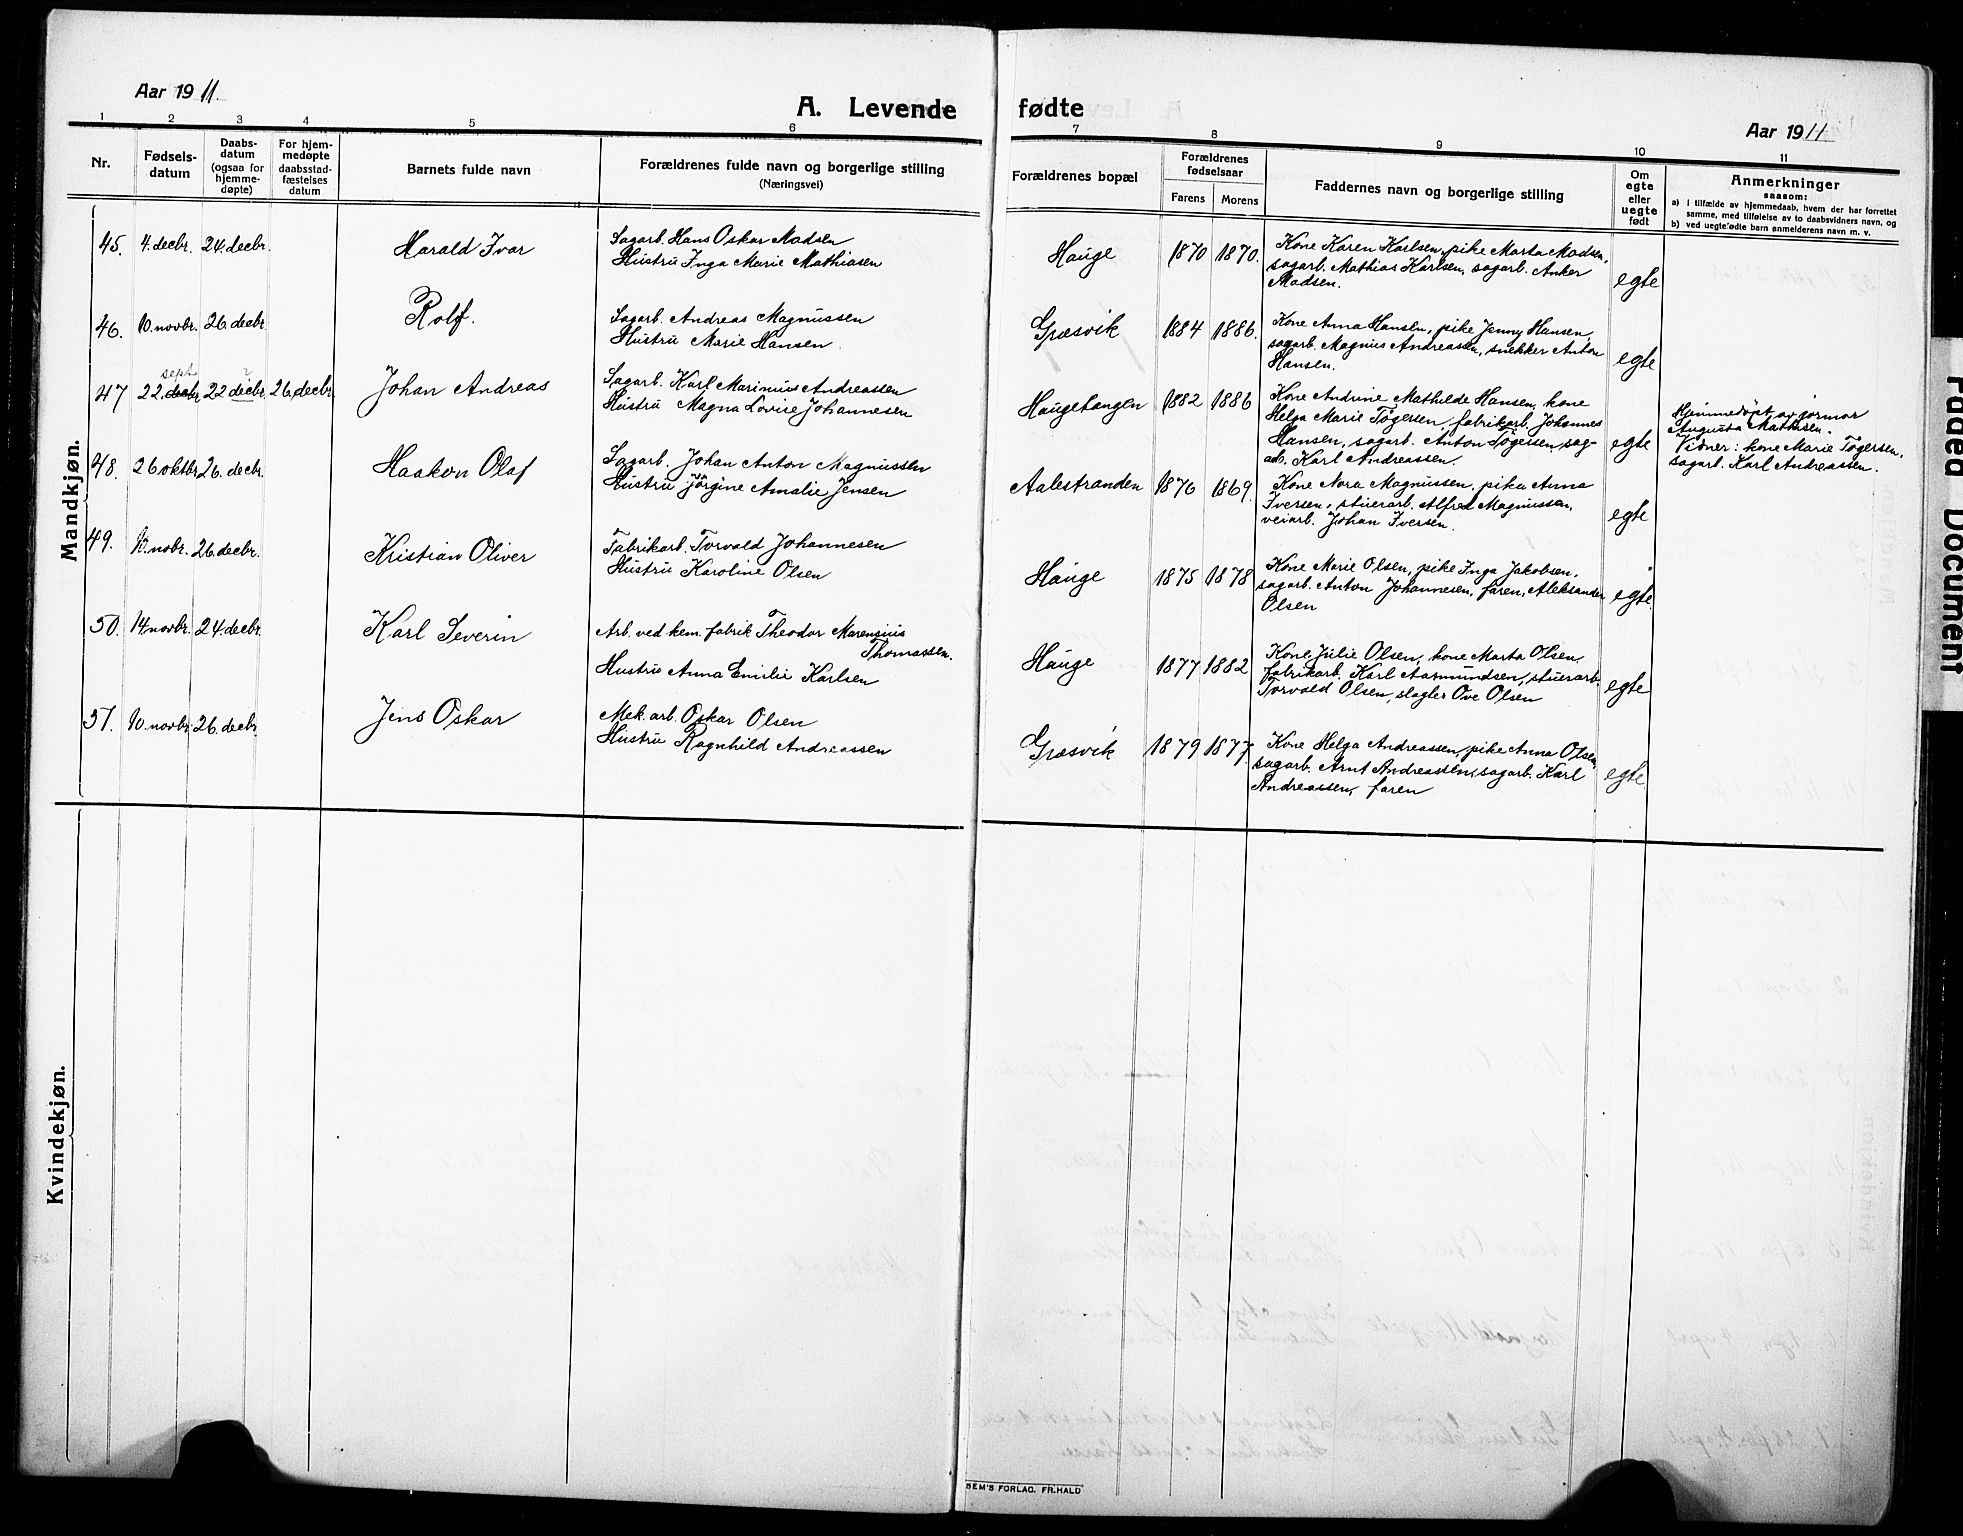 Aar 1911.
A. Levende fødte
Aar 1911
1 2 3 4 5 6 7 8 9 10 11
Nr.
Fødsels-
datum
Daabs-
datum
(ogsaa for
hjemme-
døpte)
For hjem-
medøpte
daabsstad-
fæstelses
datum
Barnets fulde navn
Forældrenes fulde navn og borgerlige stilling
(Næringsvei)
Forældrenes bopæl
Forældrenes
fødselsaar
Farens Morens
Faddernes navn og borgerlige stilling
Om
egte
eller
uegte
født
Anmerkninger
saasom:
a) i tilfælde av hjemmedaab, hvem der har forrettet
samme, med tilføielse av to daabsvidners navn, og
b) ved uegte fødte barn anmelderens navn m. v.
Mandkjøn.
45. 4. decbr. 24. decbr. Harald Ivar
Sagarb. Hans Oskar Madsen
Hustru Inga Marie Mathiasen
Hauge 1870 1870.
Kone Karen Karlsen, pike Marta Madsen,
sagarb. Mathias Karlsen, sagarb. Anker
Madsen.
egte
46. 10. novbr. 26. decbr. Rolf.
Sagarb. Andreas Magnussen
Hustru Marie Hansen.
Græsvik 1884 1886.
Kone Anna Hansen, pike Jenny Hansen,
sagarb. Magnus Andreassen, snekker Anton
Hansen.
egte
sept
47 22. decbr 22 decbr. 26. decbr. Johan Andreas
Sagarb. Karl Marinius Andreassen
Hustru Magna Lovise Johannesen
Haugetangen 1882 1886
Kone Andrine Mathilde Hansen, kone
Helga Marie Tøgersen, fabrikarb. Johannes
Hansen, sagarb. Anton Tøgersen, sag-
arb. Karl Andreassen.
egte
Hjemmedøpt av jormor
Augusta Mathisen.
Vidner: kone Marie Tøgersen,
sagarb. Karl Andreassen.
48. 26 oktbr. 26. decbr. Haakon Olaf
Sagarb. Johan Anton Magnussen
Hustru Jørgine Amalie Jensen
Aalestranden 1876 1869.
Kone Nora Magnussen, pike Anna
Iversen, stuerarb. Alfred Magnussen,
veiarb. Johan Iversen.
egte
49. 10. nobr. 26. decbr. Kristian Oliver
Fabrikarb. Torvald Johannesen
Hustru Karoline Olsen
Hauge 1875 1878
Kone Marie Olsen, pike Inga Jakobsen,
sagarb. Anton Johannesen, faren, Aleksander
Olsen
egte
50. 14. novbr. 24. decbr. Karl Severin
Arb. ved kem. fabrik Theodor Marensius
Thomassen.
Hustru Anna Emilie Karlsen
Hauge 1877 1882
Kone Julie Olsen, kone Marta Olsen,
fabrikarb. Karl Aasmundsen, stuerarb.
Torvald Olsen, slagter Ove Olsen
egte
51. 10. novbr 26. decbr. Jens Oskar
Mek. arb. Oskar Olsen
Hustru Ragnhild Andreassen
Græsvik 1879 1877.
Kone Helga Andreassen, pike Anna Olsen,
sagarb. Arnt Andreassen, sagarb. Karl
Andreassen, faren
egte
Kvindekjøn.
SEM'S FORLAG, FR.HALD
Faded Document